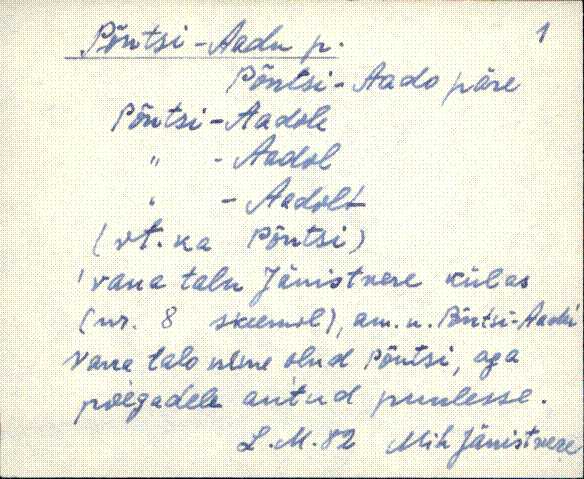 Põntsi-Aadu p. 1
Põntsi-Aado päre
Põntsi-Aadole
" -Aadol
" -Aadolt
(vt. ka Põntsi)
'vana talu Jänistvere külas
(nr. 8 skeemil), am. n. Põntsi-Aadu
Vana talo nime olud Põntsi, aga
poegadele antud puulesse.
L. M. 82 Mih Jänistvere